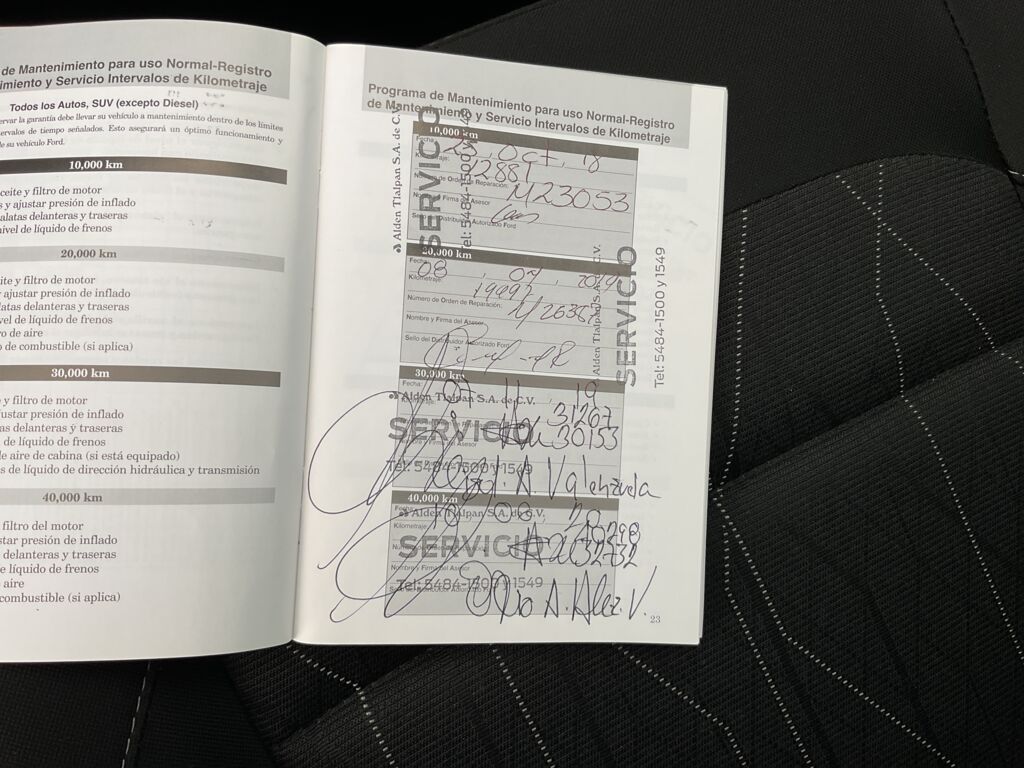 de Mantenimiento para uso Normal-Registro
imiento y Servicio Intervalos de Kilometraje
Todos los Autos, SUV (excepto Diesel)
ervar la garantía debe llevar su vehículo a mantenimiento dentro de los límites
ervalos de tiempo señalados. Esto asegurará un óptimo funcionamiento y
e su vehículo Ford.
10,000 km
ceite y filtro de motor
s y ajustar presión de inflado
alatas delanteras y traseras
nivel de líquido de frenos
20,000 km
ite y filtro de motor
y ajustar presión de inflado
latas delanteras y traseras
vel de líquido de frenos
o de aire
o de combustible (si aplica)
30,000 km
e y filtro de motor
justar presión de inflado
as delanteras y traseras
l de líquido de frenos
e aire de cabina (si está equipado)
es de líquido de dirección hidráulica y transmisión
40,000 km
filtro del motor
star presión de inflado
delanteras y traseras
e líquido de frenos
aire
combustible (si aplica)
Programa de Mantenimiento para uso Normal-Registro
de Mantenimiento y Servicio Intervalos de Kilometraje
10,000 km
Fecha: 23, Oct, 18
Kilometraje: 12881
Número de Orden de Reparación: M23053
Nombre y Firma del Asesor
Sello del Distribuidor Autorizado Ford
Alden Tlalpan S.A. de C.V.
SERVICIO
Tel: 5484-1500 y
20,000 km
Fecha: 08, 2019
Kilometraje:
Número de Orden de Reparación:
Nombre y Firma del Asesor
Sello del Distribuidor Autorizado Ford
Alden Tlalpan S.A. de C.V.
SERVICIO
Tel: 5484-1500 y 1549
30,000 km
Fecha: 07 11 19
31267
30153
Alden Tlalpan S.A. de C.V.
SERVICIO
Tel: 5484-1500 y 1549
A. Valenzuela
40,000 km
Fecha:
Kilometraje:
32732
Nombre y Firma del Asesor
Alden Tlalpan S.A. de C.V.
SERVICIO
Tel: 5484-1500 y 1549
23